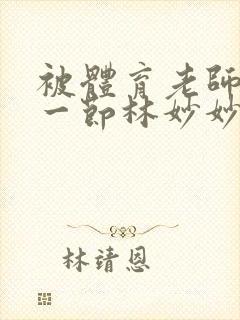 被體育老師
一節林妙妙
林靖恩